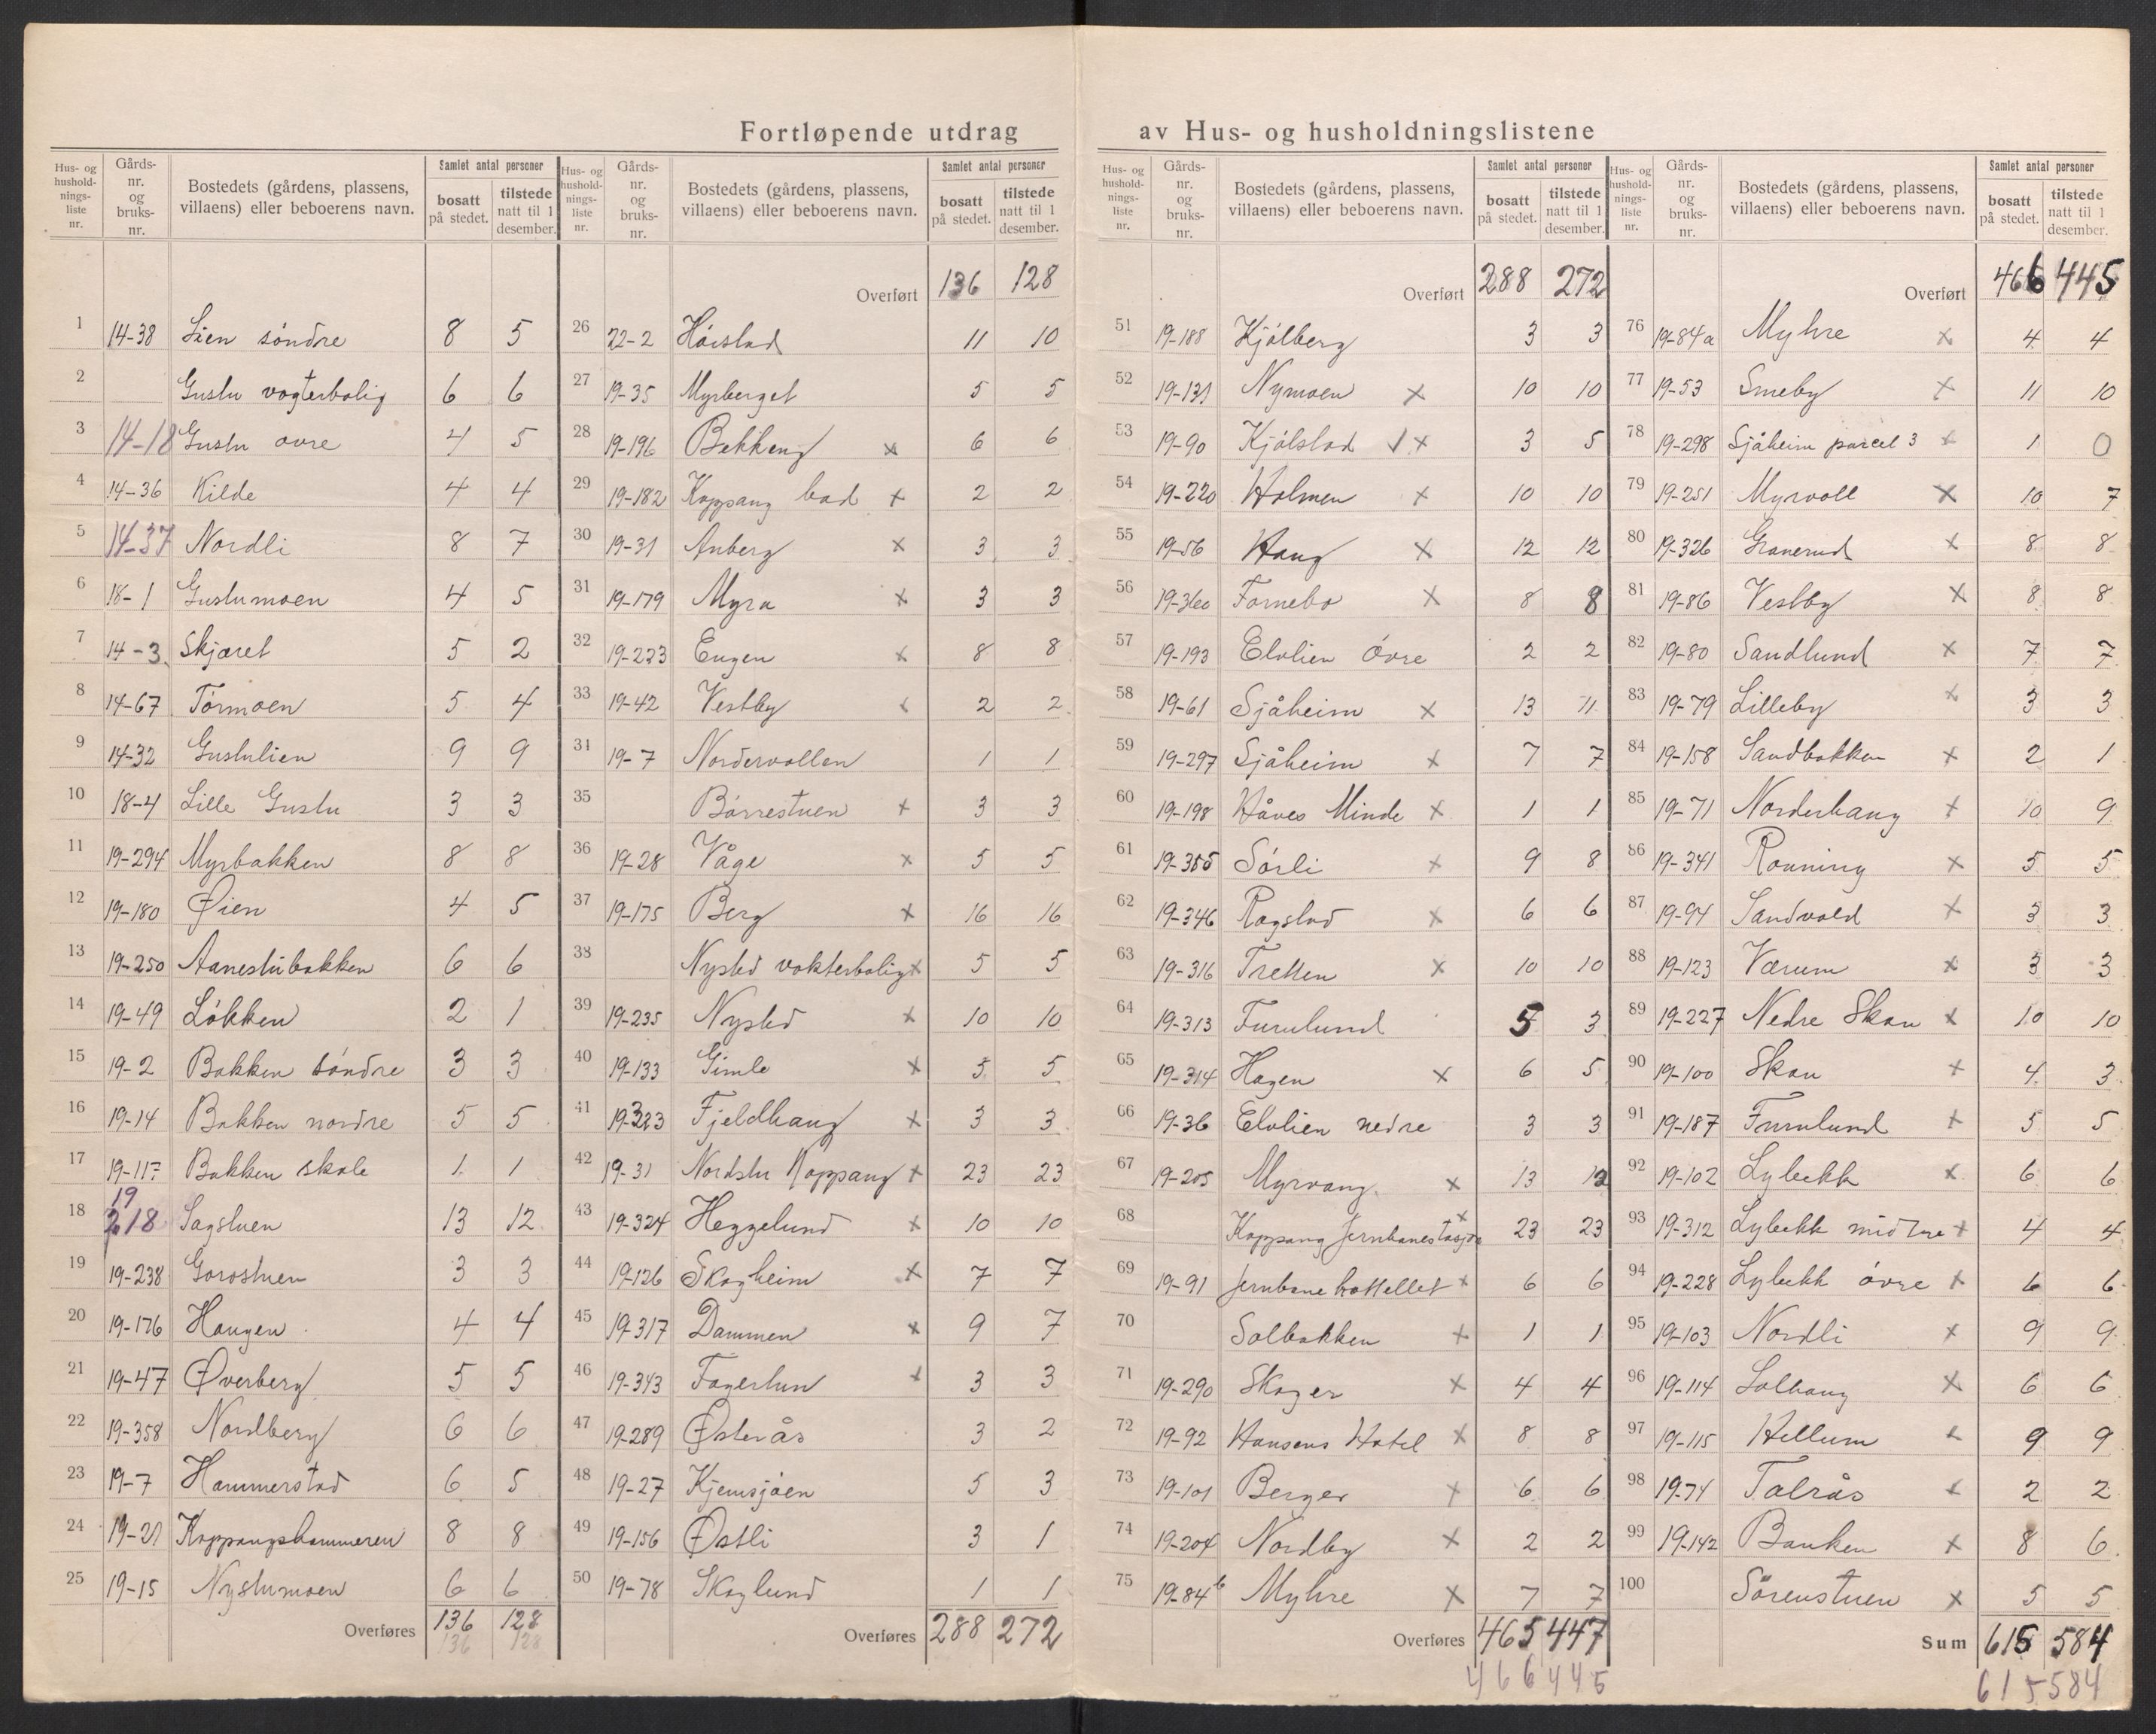 Fortløpende utdrag av Hus- og husholdningslistene
Hus- og hushold-nings-liste nr. Gårds-nr. og bruks-nr. Bostedets (gårdens, plassens, villaens) eller beboerens navn. Samlet antal personer bosatt på stedet. tilstede natt til 1 desember.
1 14-38 Lien söndre 8 5
2 Gustu vogterbolig 6 6
3 14-18 Gustu övre 4 5
4 14-36 Kilde 4 4
5 14-37 Nordli 8 7
6 18-1 Gustumoen 4 5
7 14-3 Skjæret 5 2
8 14-67 Törmoen 5 4
9 14-32 Gustulien 9 9
10 18-4 Lille Gustu 3 3
11 19-294 Myrbakken 8 8
12 19-180 Øien 4 5
13 19-250 Aanestubakken 6 6
14 19-49 Lökken 2 1
15 19-2 Bakken söndre 3 3
16 19-14 Bakken nordre 5 5
17 19-117 Bakken skole 1 1
18 19 218 Sagstuen 13 12
19 19-238 Gorostuen 3 3
20 19-176 Haugen 4 4
21 19-47 Øverberg 5 5
22 19-358 Nordberg 6 6
23 19-7 Hammerstad 6 5
24 19-21 Koppangshammeren 8 8
25 19-15 Nystumoen 6 6
Overføres 136 128
136 128
Hus- og hushold-nings-liste nr. Gårds-nr. og bruks-nr. Bostedets (gårdens, plassens, villaens) eller beboerens navn. Samlet antal personer bosatt på stedet. tilstede natt til 1 desember.
Overført 136 128
26 22-2 Höistad 11 10
27 19-35 Myrberget 5 5
28 19-196 Bekkeng x 6 6
29 19-182 Koppang bad x 2 2
30 19-31 Anberg x 3 3
31 19-179 Myra x 3 3
32 19-223 Engen x 8 8
33 19-42 Vestby x 2 2
31 19-7 Nordervollen 1 1
35 Börrestuen x 3 3
36 19-28 Våge x 5 5
37 19-175 Berg x 16 16
38 Nysted vokterbolig x 5 5
39 19-235 Nysted x 10 10
40 19-133 Gimle x 5 5
41 19-323 Fjeldhaug x 3 3
42 19-31 Nordstu Koppang x 23 23
43 19-324 Heggelund x 10 10
44 19-126 Skogheim x 7 7
45 19-317 Dammen x 9 7
46 19-343 Fagerlun x 3 3
47 19-289 Østerås 3 2
48 19-27 Kjemsjöen 5 3
49 19-156 Østli 3 1
50 19-78 Skoglund 1 1
Overføres 288 272
Hus- og hushold-nings-liste nr. Gårds-nr. og bruks-nr. Bostedets (gårdens, plassens, villaens) eller beboerens navn. Samlet antal personer bosatt på stedet. tilstede natt til 1 desember.
Overført 288 272
51 19-188 Kjölberg 3 3
52 19-131 Nymoen x 10 10
53 19-90 Kjölstad √ x 3 5
54 19-220 Holmen x 10 10
55 19-56 Haug x 12 12
56 19-360 Fornebo x 8 8
57 19-193 Elvlien övre 2 2
58 19-61 Sjåheim x 13 11
59 19-297 Sjåheim x 7 7
60 19-198 Håves Minde x 1 1
61 19-355 Sörli x 9 8
62 19-346 Rogstad x 6 6
63 19-316 Tretten x 10 10
64 19-313 Furulund 5 3
65 19-314 Hagen x 6 5
66 19-36 Elvlien nedre 3 3
67 19-205 Myrvang x 13 12
68 Koppang Jernbanestasjon x 23 23
69 19-91 Jernbane hottellet x 6 6
70 Solbakken x 1 1
71 19-290 Skoger x 4 4
72 19-92 Hansens Hotel x 8 8
73 19-101 Berger x 6 6
74 19-204 Nordby x 2 2
75 19-84b Myhre x 7 7
Overføres 465 447
466 445
Hus- og hushold-nings-liste nr. Gårds-nr. og bruks-nr. Bostedets (gårdens, plassens, villaens) eller beboerens navn. Samlet antal personer bosatt på stedet. tilstede natt til 1 desember.
Overført 466 445
76 19-84a Myhre x 4 4
77 19-53 Smeby x 11 10
78 19-298 Sjåheim parcel 3 x 1 0
79 19-251 Myrvoll x 10 7
80 19-326 Granerud x 8 8
81 19-86 Vestby x 8 8
82 19-80 Sandlund x 7 7
83 19-79 Lilleby x 3 3
84 19-158 Sandbakken x 2 1
85 19-71 Norderhaug x 10 9
86 19-341 Rønning x 5 5
87 19-94 Sandvold x 3 3
88 19-123 Værum x 3 3
89 19-227 Nedre Skau x 10 10
90 19-100 Skau x 4 3
91 19-187 Furulund x 5 5
92 19-102 Lybekk x 6 6
93 19-312 Lybekk midtre x 4 4
94 19-228 Lybekk övre x 6 6
95 19-103 Nordli x 9 9
96 19-114 Solhaug x 6 6
97 19-115 Hellum x 9 9
98 19-74 Tolrås x 2 2
99 19-142 Banken x 8 6
100 Sörenstuen x 5 5
Sum 615 584
615 584